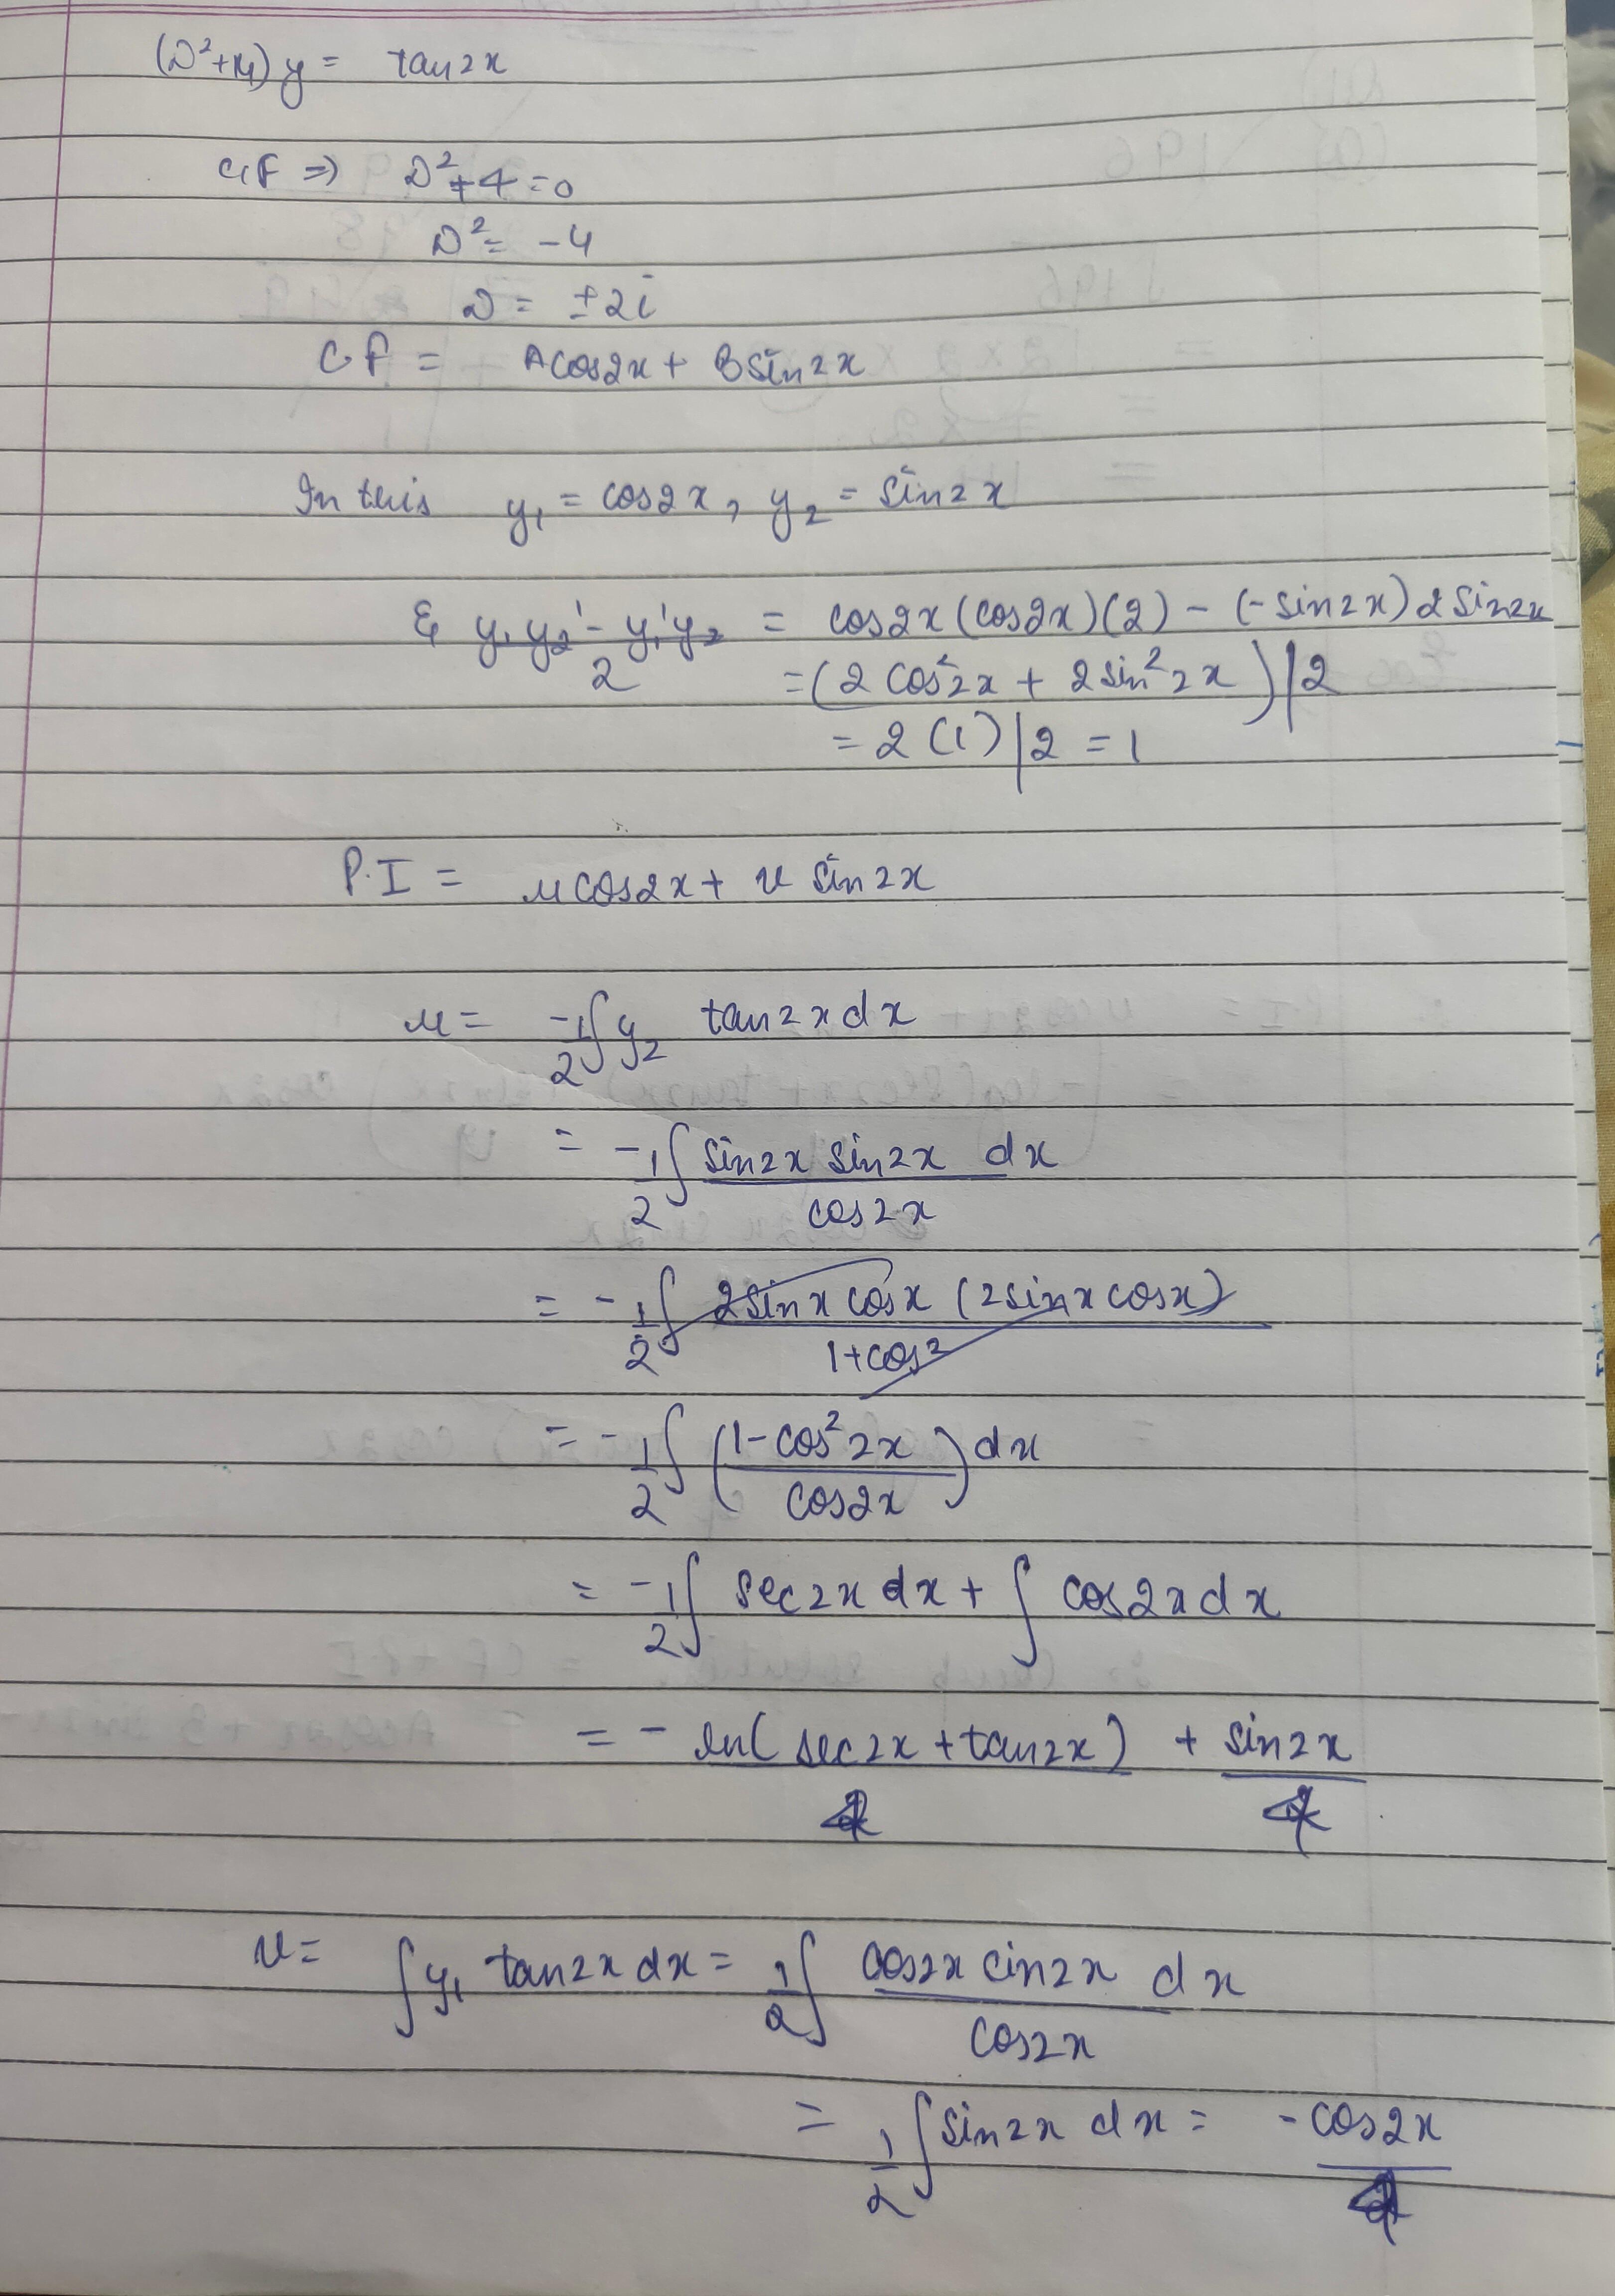 (D²+4) y = tan2x
C.F ⇒ D²+4=0
D² = -4
D = ±2i
C.F = Acos2x + Bsin2x
In this y₁ = cos2x, y₂ = sin2x
& y₁y₂' - y₁'y₂ / 2 = cos2x(cos2x)(2) - (-sin2x)2sin2x
= (2cos²2x + 2sin²2x)/2
= 2(1)/2 = 1
P.I = ucos2x + v sin2x
u = -1/2 ∫ y₂ tan2x dx
= -1/2 ∫ sin2x sin2x dx / cos2x
= -1/2 ∫ 2sinx cosx (2sinx cosx) / 1+cos²
= -1/2 ∫ (1-cos²2x / cos2x) dx
= -1/2 ∫ sec2x dx + ∫ cos2x dx
= - ln(sec2x + tan2x) / 4 + sin2x / 4
v = ∫ y₁ tan2x dx = 1/2 ∫ cos2x sin2x dx / cos2x
= 1/2 ∫ sin2x dx = -cos2x / 4